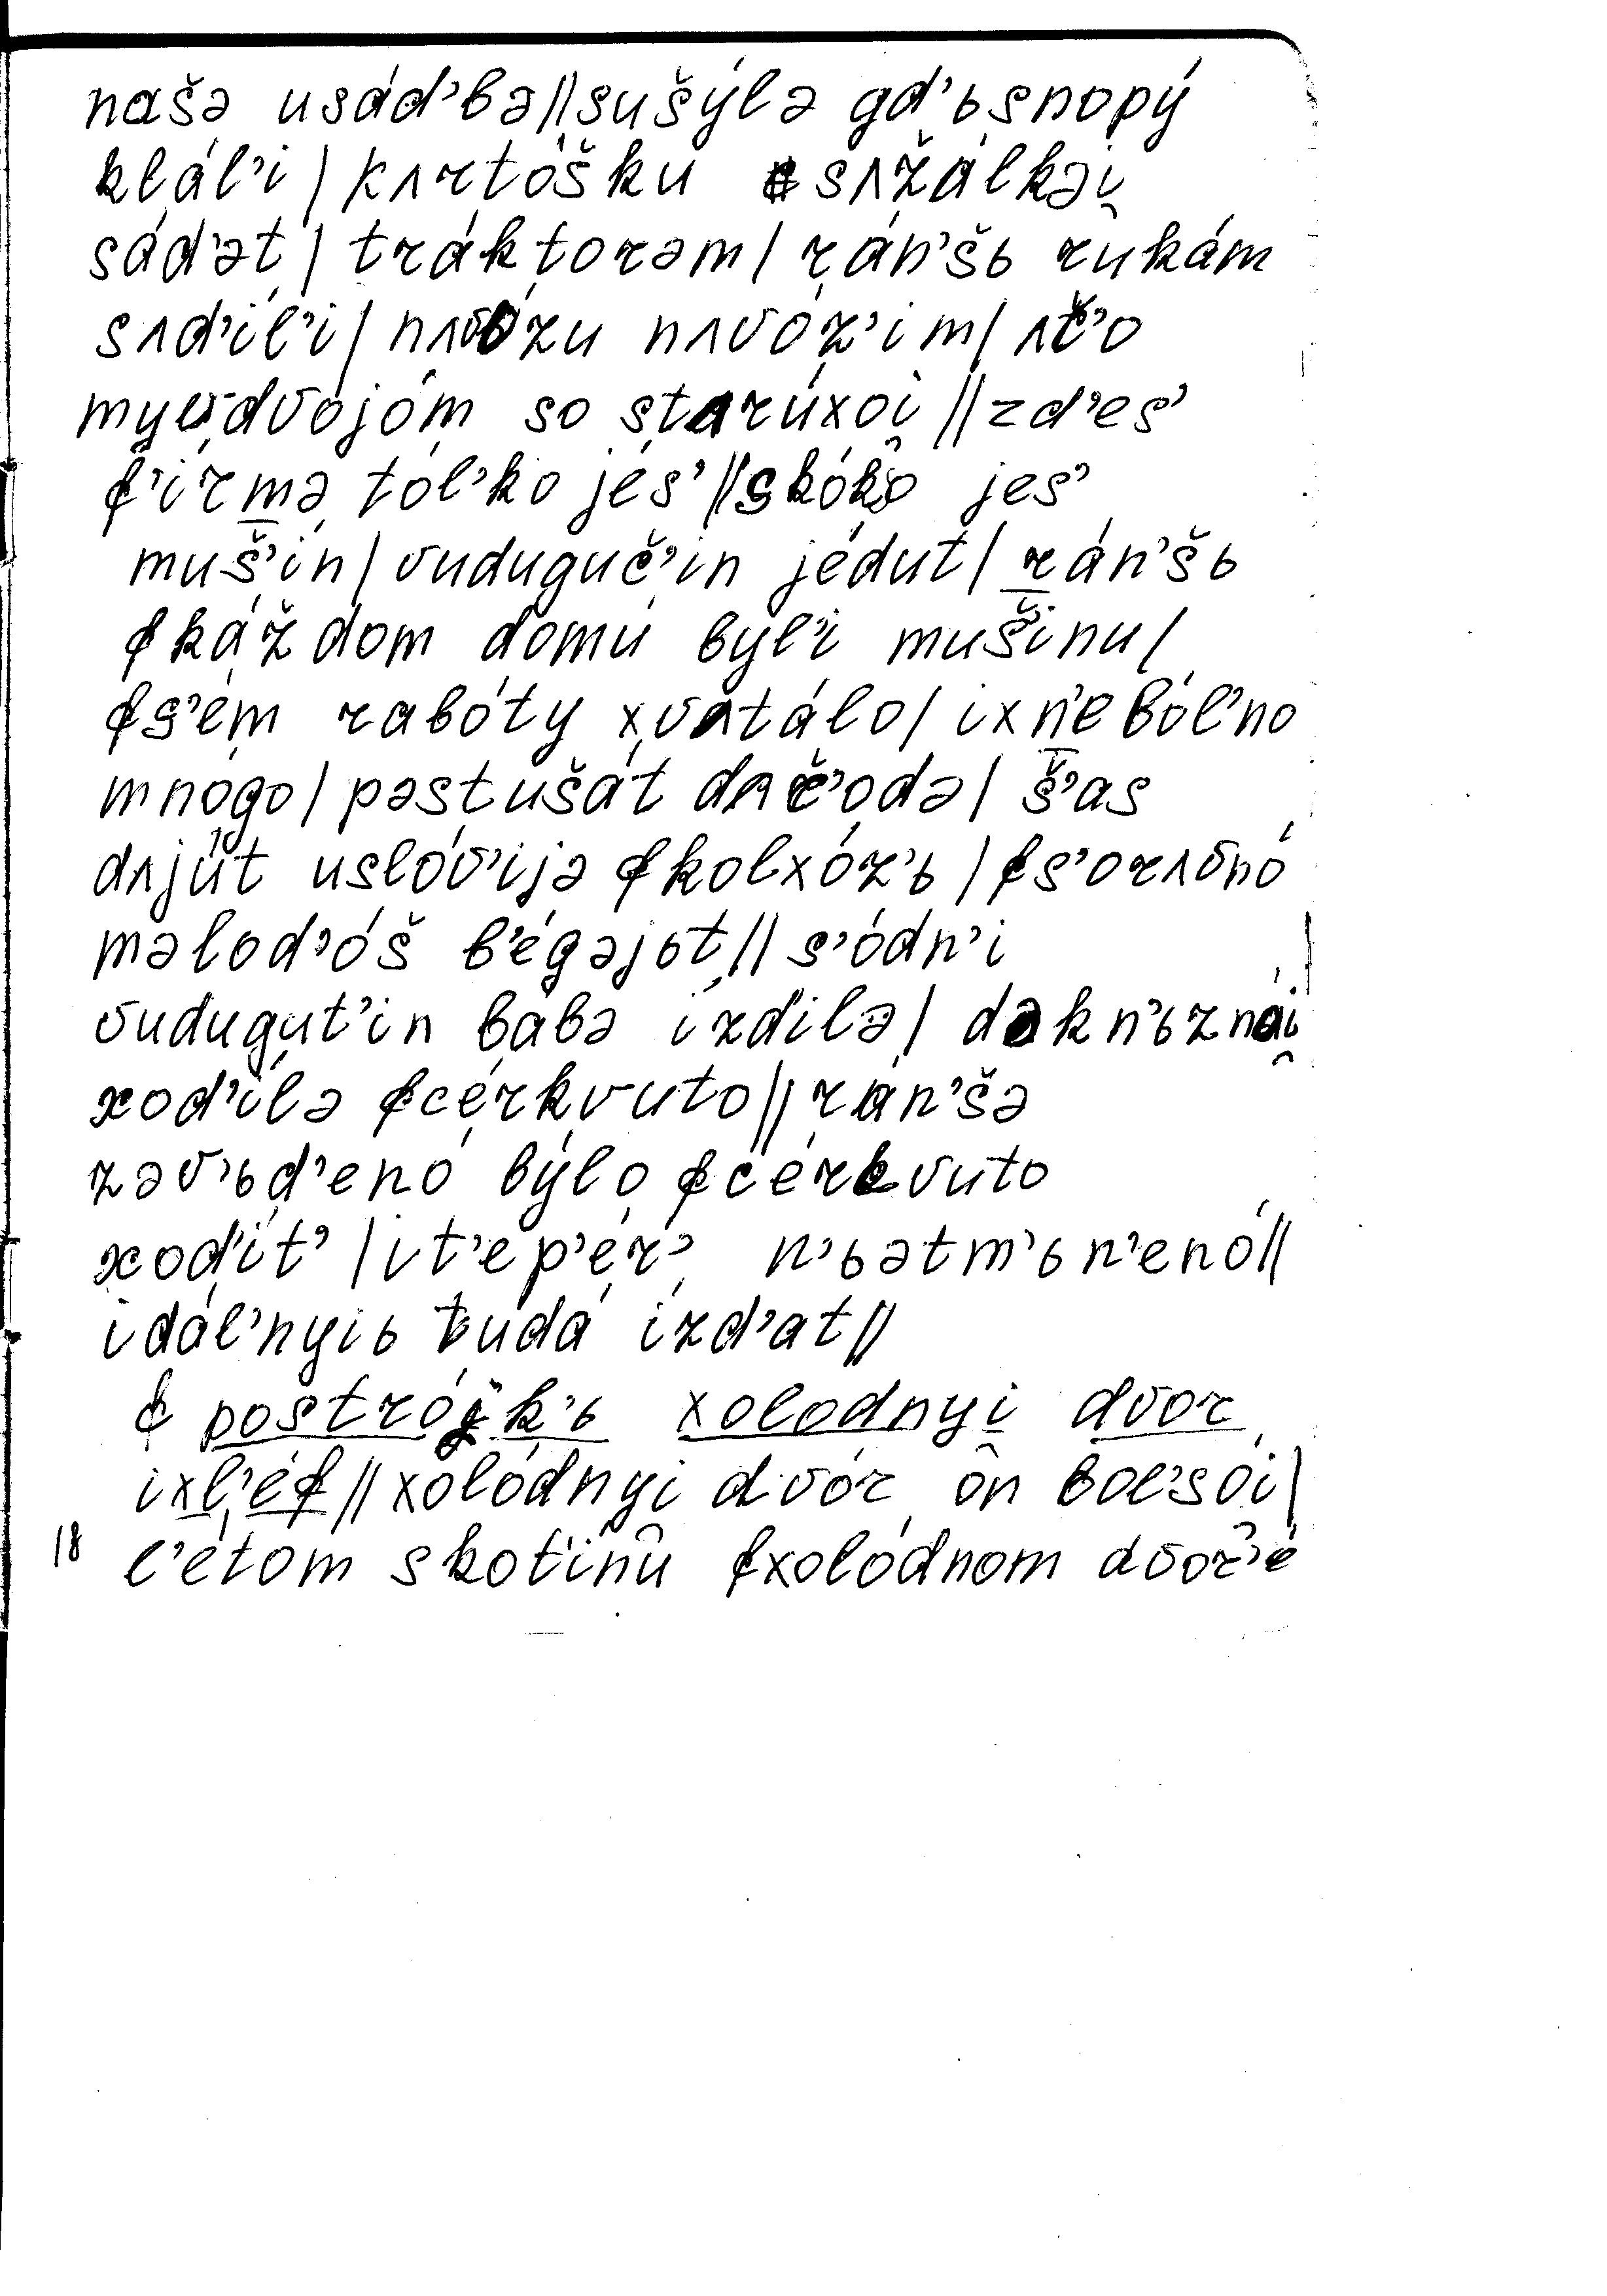 našə usádʼbə||sušýlə gdʼьsnopý
klálʼi | kʌrtóšku sʌžálkəi̯
sádʼət | tráktorəm | ránʼšь rukám
sʌdʼílʼi | nʌvózu nʌvózʼim | ʌčʼo
my dvojóm so starúxoi̯ || zdʼesʼ
fʼírmə tólʼko jésʼ || skóko jesʼ
mušʼín | vudugučʼin jédut | ránʼšь
fkáždom domú bylʼi mušʼínu |
fsʼém rabóty xvʌtálo | ixnʼebólʼno
mnógo | pəstušát dʌčʼodə | šʼas
dʌjút uslóvʼijə fkolxózʼь | fsʼorʌvnó
məlodʼóš bʼégəjət || sʼódnʼi
vudugutʼin babə ízdilə | dək nʼьznái̯
xodʼílə fcérkvuto || ránʼšə
zəvʼьdʼenó býlo fcérkvuto
xodʼítʼ | itʼepʼérʼ nʼьətmʼьnʼenó ||
idálʼnyiь tudá ízdʼat ||
f postrójkʼь xolodnyi dvor
ixlʼéf || xolódnyi̯ dvór on bolʼsói |
18 lʼétom skotʼínu fxolódnom dvorʼé